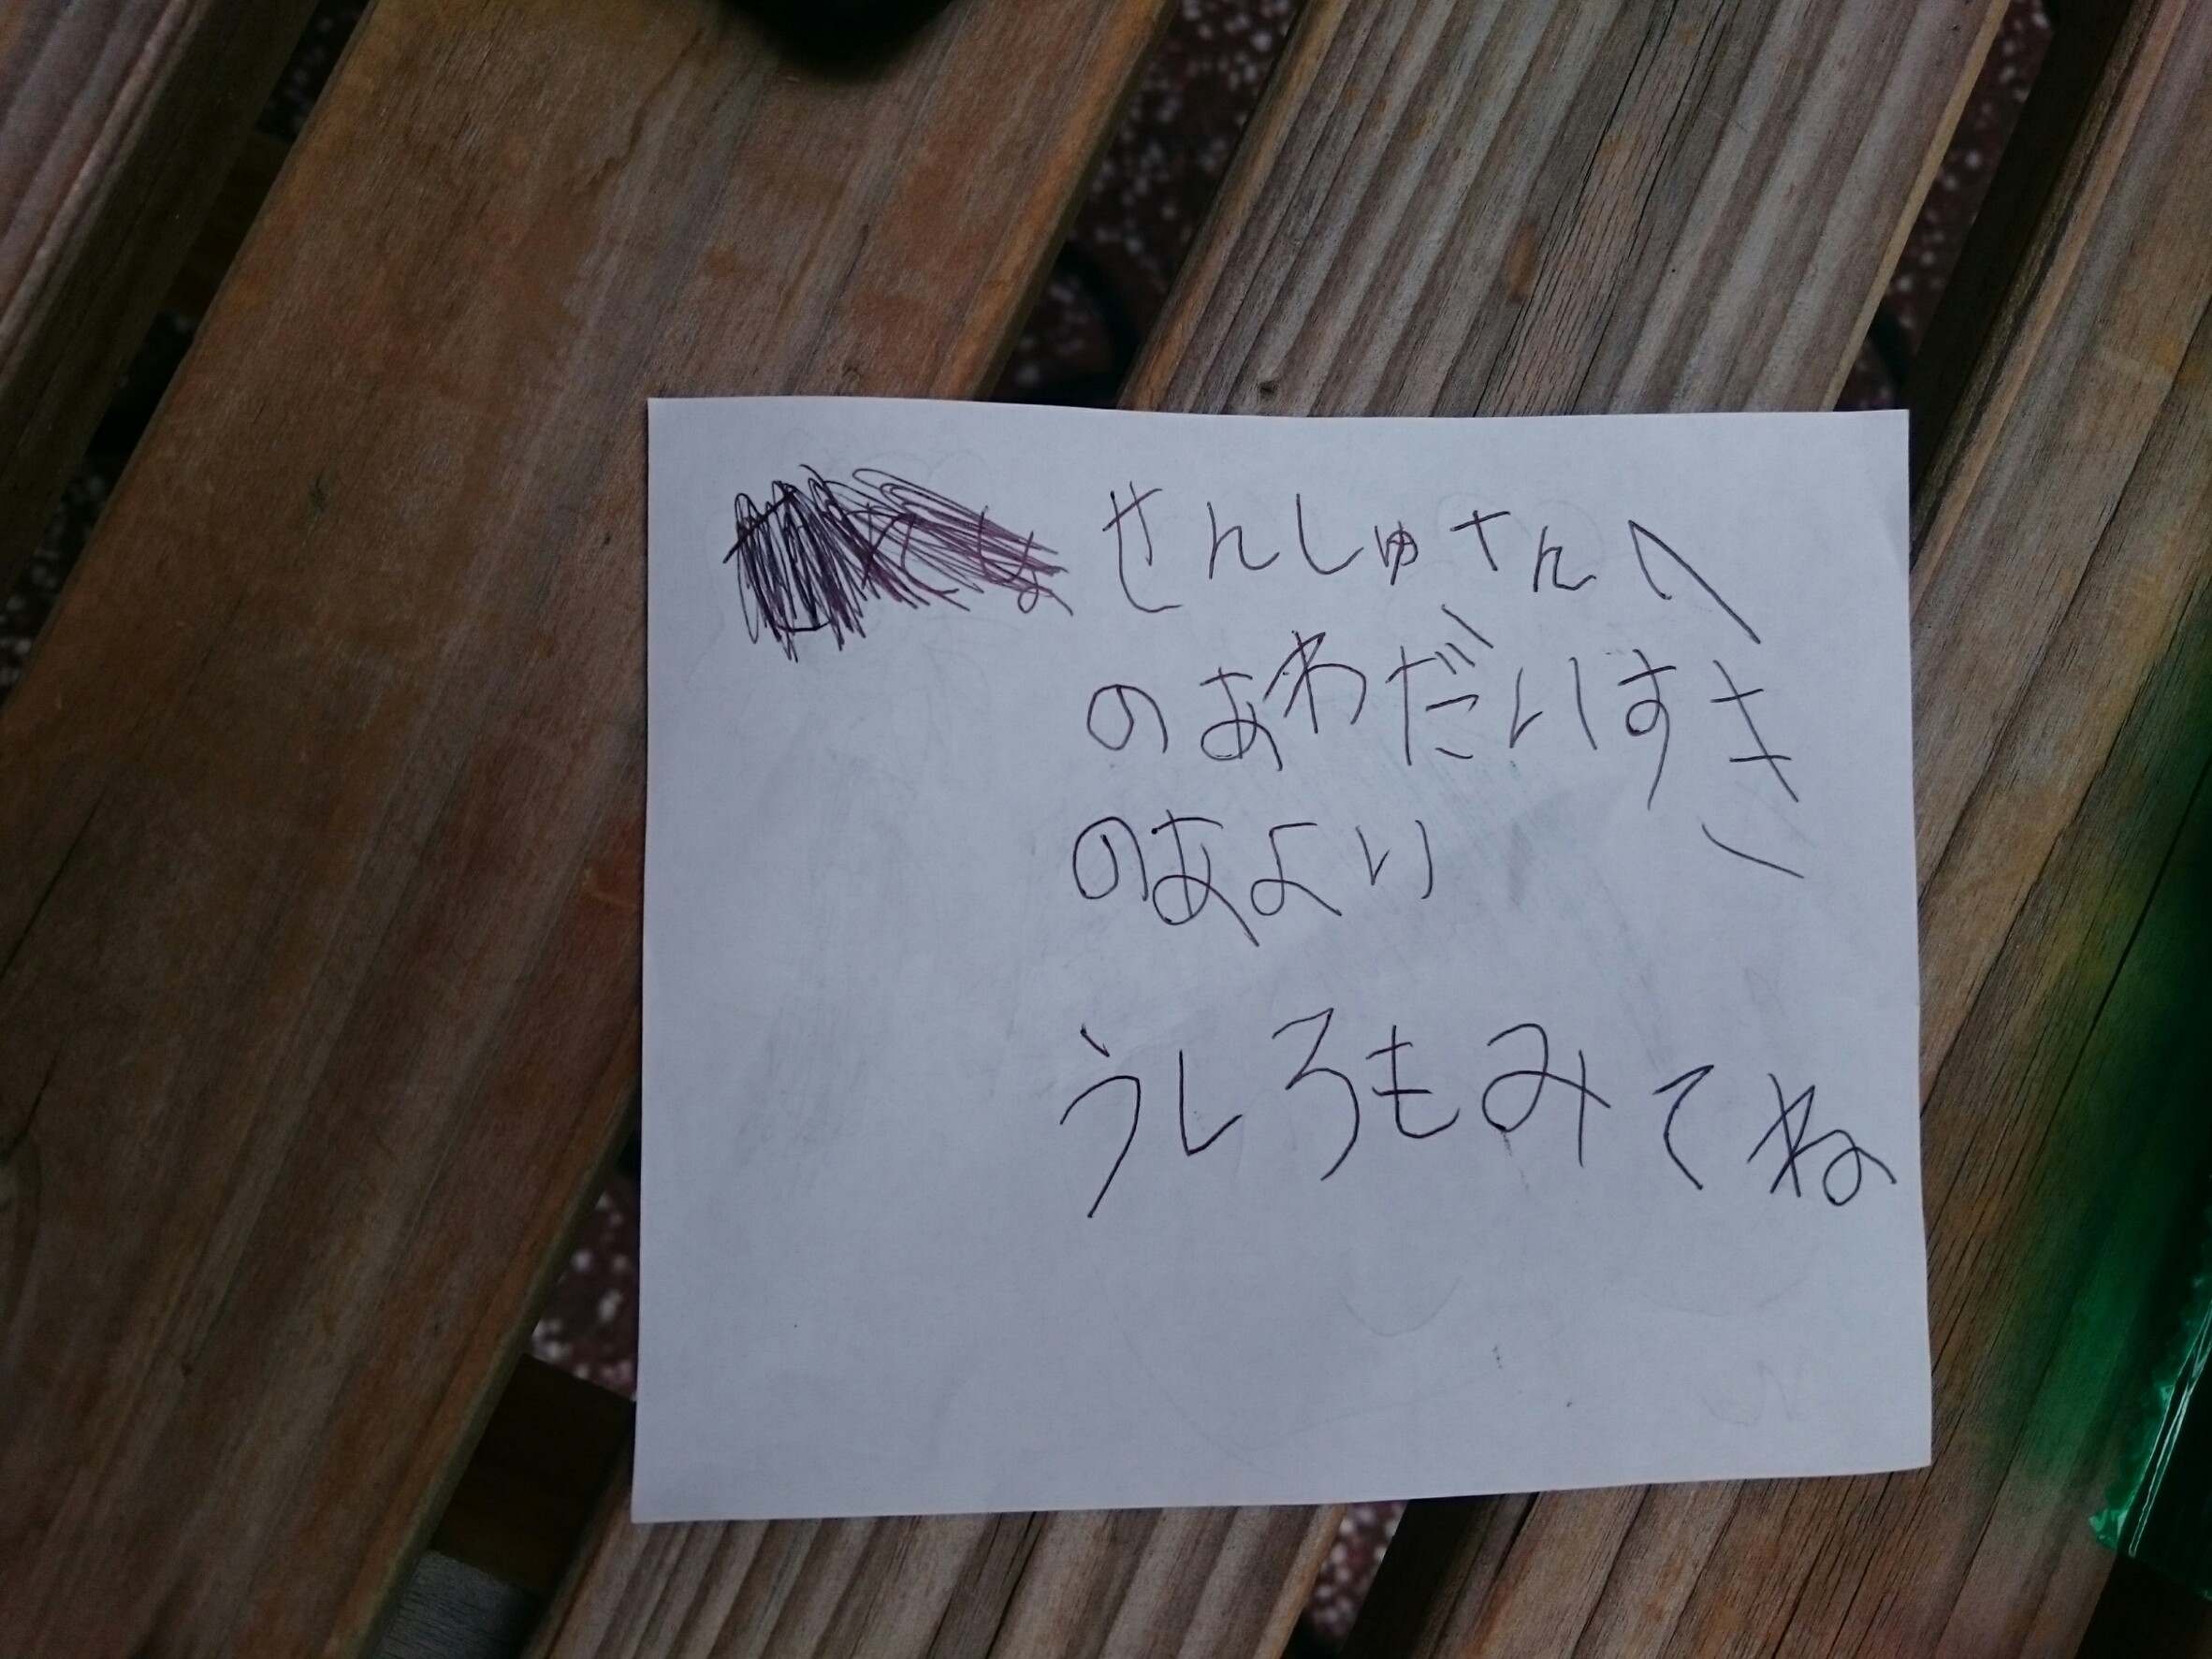 せんしゅさんへ
のあわだいすき
のあよい
うしろもみてね